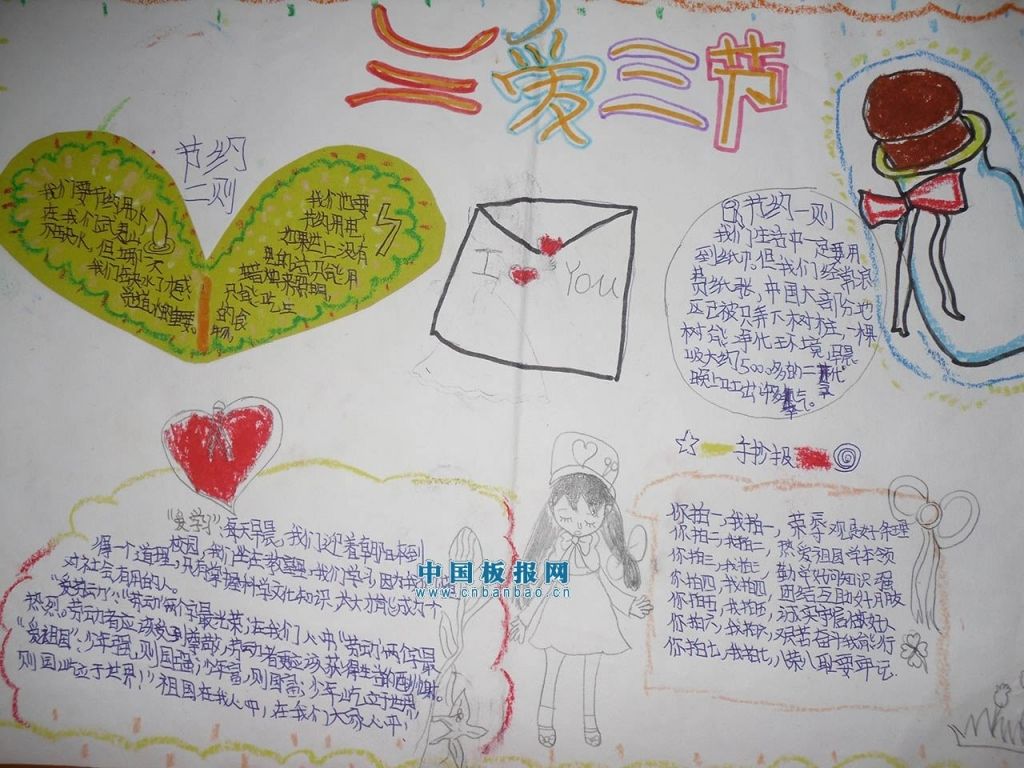 二爱三节
节约
二则
我们要节约用水
在我们武夷山
我们也要
节约用电
如果世上没有
只能吃生
的食
物。
I You
节约一则
我们生活中一定要用
到纸巾。但我们经常浪
费纸张，中国大部分地
区已被只弄下树桩，一棵
树能净化环境，早晨
吸大约5000多的二氧化
晚上吐出许多氧气。
手抄报
"爱学习"：每天早晨，我们迎着朝阳来到
校园，我们坐在教室里，我们学习，因为我们
得一个道理，只有掌握科学文化知识，
对社会有用的人。
"爱劳动"："劳动"两个字最光荣，在我们人中"劳动"两个字最
热烈。劳动者应该受到尊敬，劳动者更应该获得生活的酬谢。
"爱祖国"：少年强，则国强；少年富，则国富；少年屹立于世界
则国屹立于世界！"祖国在我心中，在我们大家心中！"
你拍一，我拍一，荣辱观里好条理
你拍二，我拍二，热爱祖国学本领
你拍三，我拍三，勤学好问知识强
你拍四，我拍四，团结互助好朋友
你拍五，我拍五，诚实守信做好人
你拍六，我拍六，艰苦奋斗我能行
你拍七，我拍七，八荣八耻要牢记
中国板报网
www.cnbanbao.cn